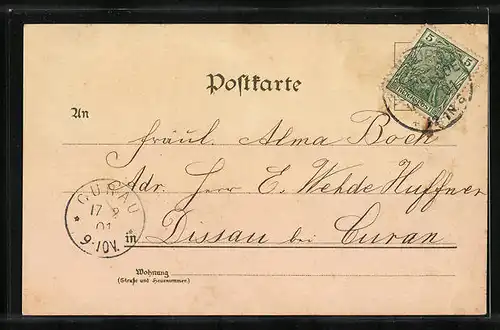 Postkarte
5 5
An
Fräul. Alma Boch
Adr. Herr E. Wehde Huffner
in Dissau bei Curau
CURAU
17 2
01
9-10V.
Wohnung
(Straße und Hausnummer)